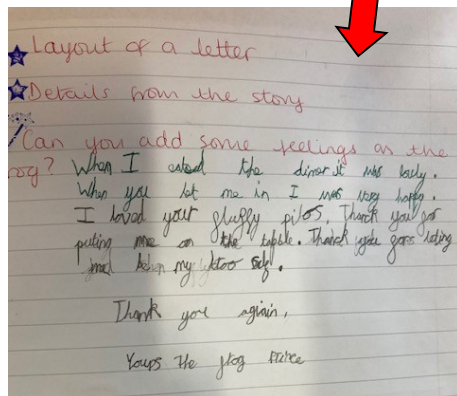 Layout of a letter
Details from the story
Can you add some feelings as the
frog? When I eated the diner it was lovly.
When you let me in I was very happy.
I loved your fluffy pilos. Thank you for
puting me on the table. Thank you for
me my
Thank you again,
Yours The frog Prince